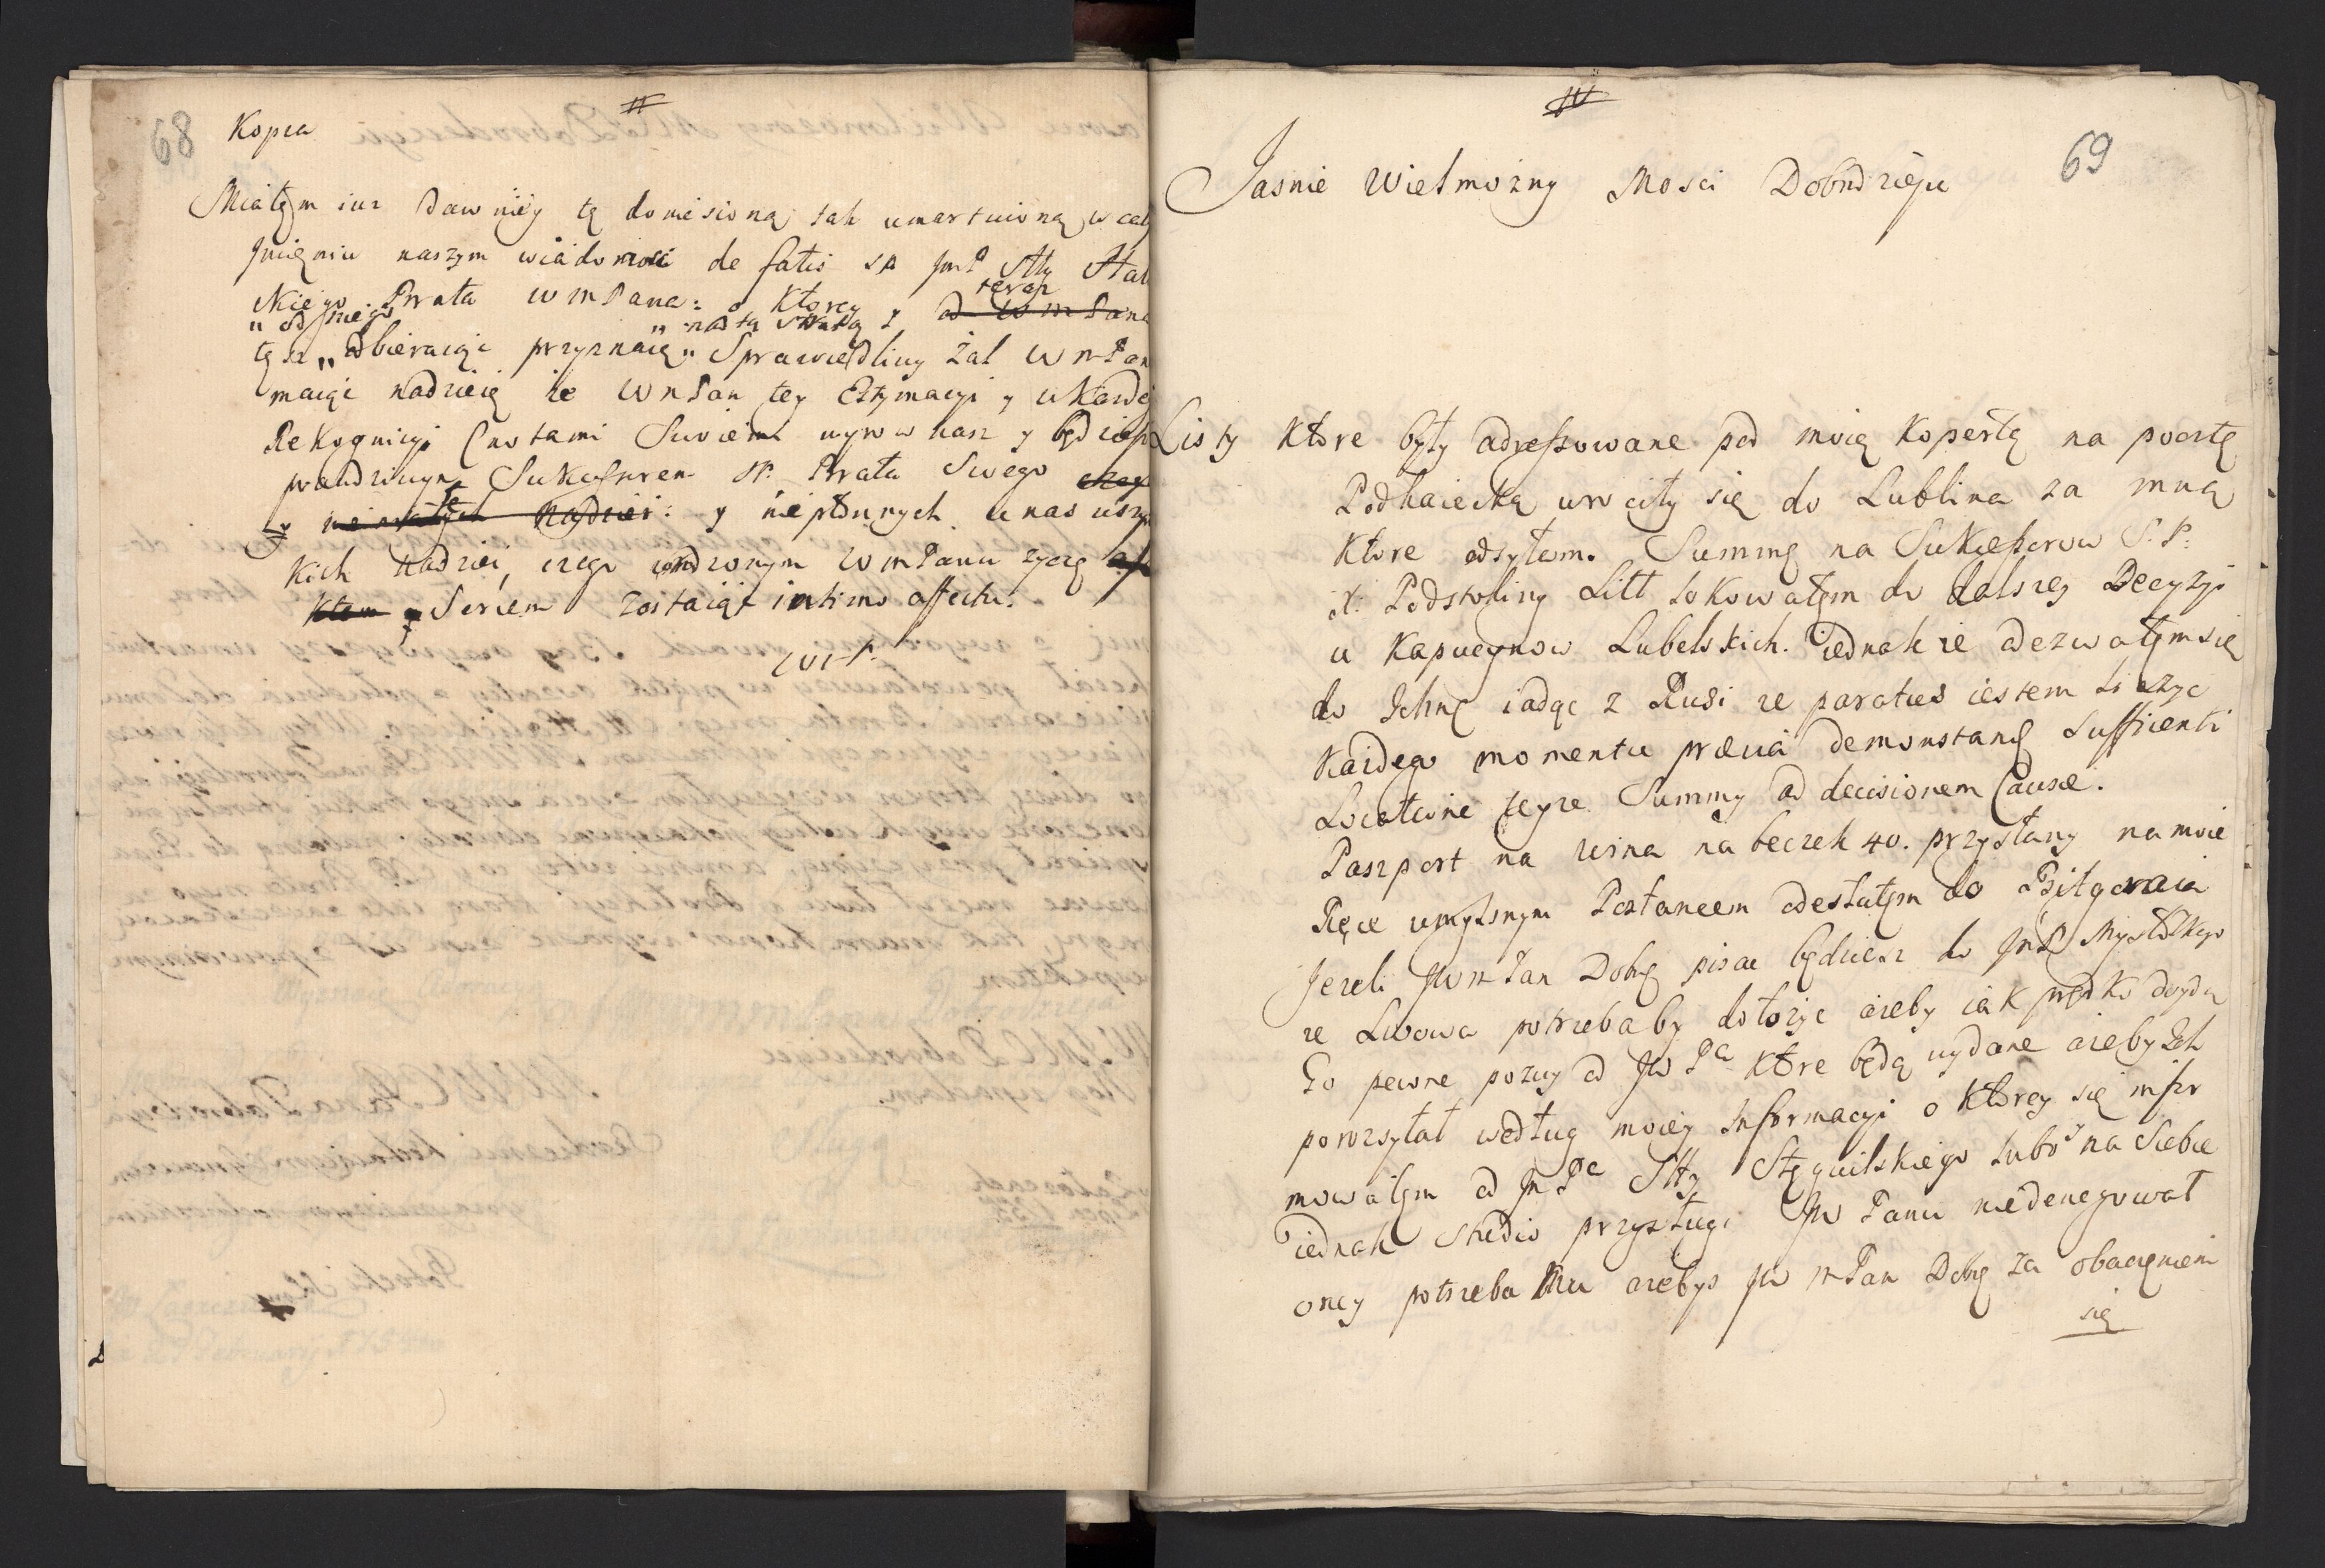 68
Kopia
Miałęm iuz dawniéy tę doniesioną tak umartwioną w cał
Jmięniu naszym wiadomość de fatis SP JmP Stty Hal
skiego Brata WmPana: o ktorey teraz
" od Jniego " nasta y od WmPana
tęsz " odbieraiąc przyznaię " Sprawiedliwy żal WmPan
maiąc nadzieię że WmPan tey Estymacyi y w każdey
Rekognicyi Cnotami Swiemi wyrownasz y będziesz
prawdziwym Sukcessorem SP. Brata Swego
y niepłonnych u nas wszy
kich Nadziei, czego WmPanu życzę
Sercem zostaiąc intimo affectu.
69
Jasnie Wielmożny Mosci Dobrdzieju
Listy ktore były adressowane pod moią kopertą na pocztę
Podhaiecką wrociły się do Lublina za mną
ktore odsyłam. Summę na Sukcessorow S.P.
X. Podstoliny Litt lokowałęm do dalszey Decyzyi
u Kapucynow Lubelskich. iednakże odezwałęm się
do Ichmć iadąc z Rusi że paratus iestem liczyc
każdego momentu prævia demonstraną sufficienti
Locatione teyże Summy ad decisionem Causæ.
Paszport na wina na beczek 40. przysłany na moie
Ręce umyślnym Posłancem odesłałęm do Biłgoraia
Jezeli JWmPan Dobrę pisac będziesz do JmP Mysłowskiego
ze Lwowa potrzebaby dołożyc ażeby iak prędko doydą
Go pewne pozwy od JWPa ktore będą wydane ażeby Ich
porozsyłał według moiey Informacyi o ktorey się infor
mowałęm od JmPa Stty Stęgwilskiego lubo na siebie
iednak studio przysługi JW Panu niedenegował
oney potrzeba Mu ażebys JWmPan Dobrę za obaczęniem
się